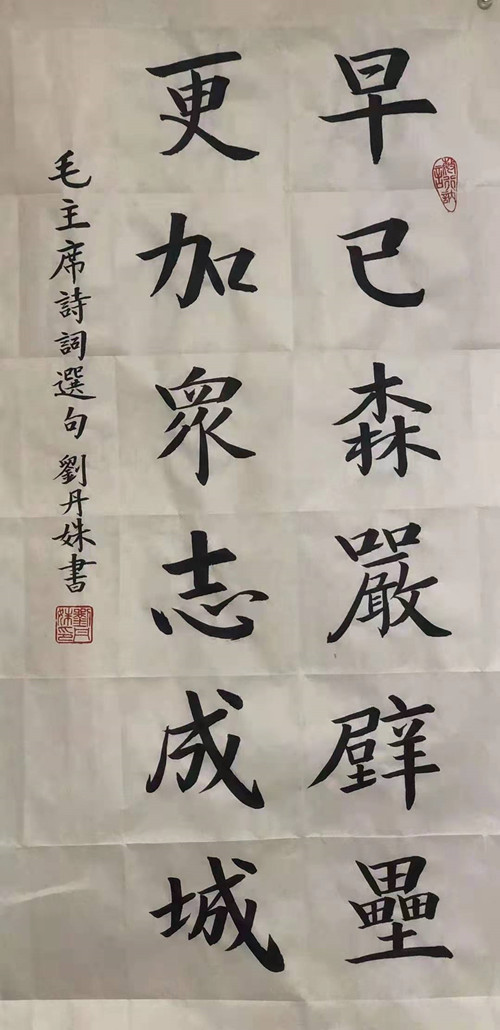 早已森嚴壁壘
更加衆志成城
毛主席詩詞選句 劉丹姝書